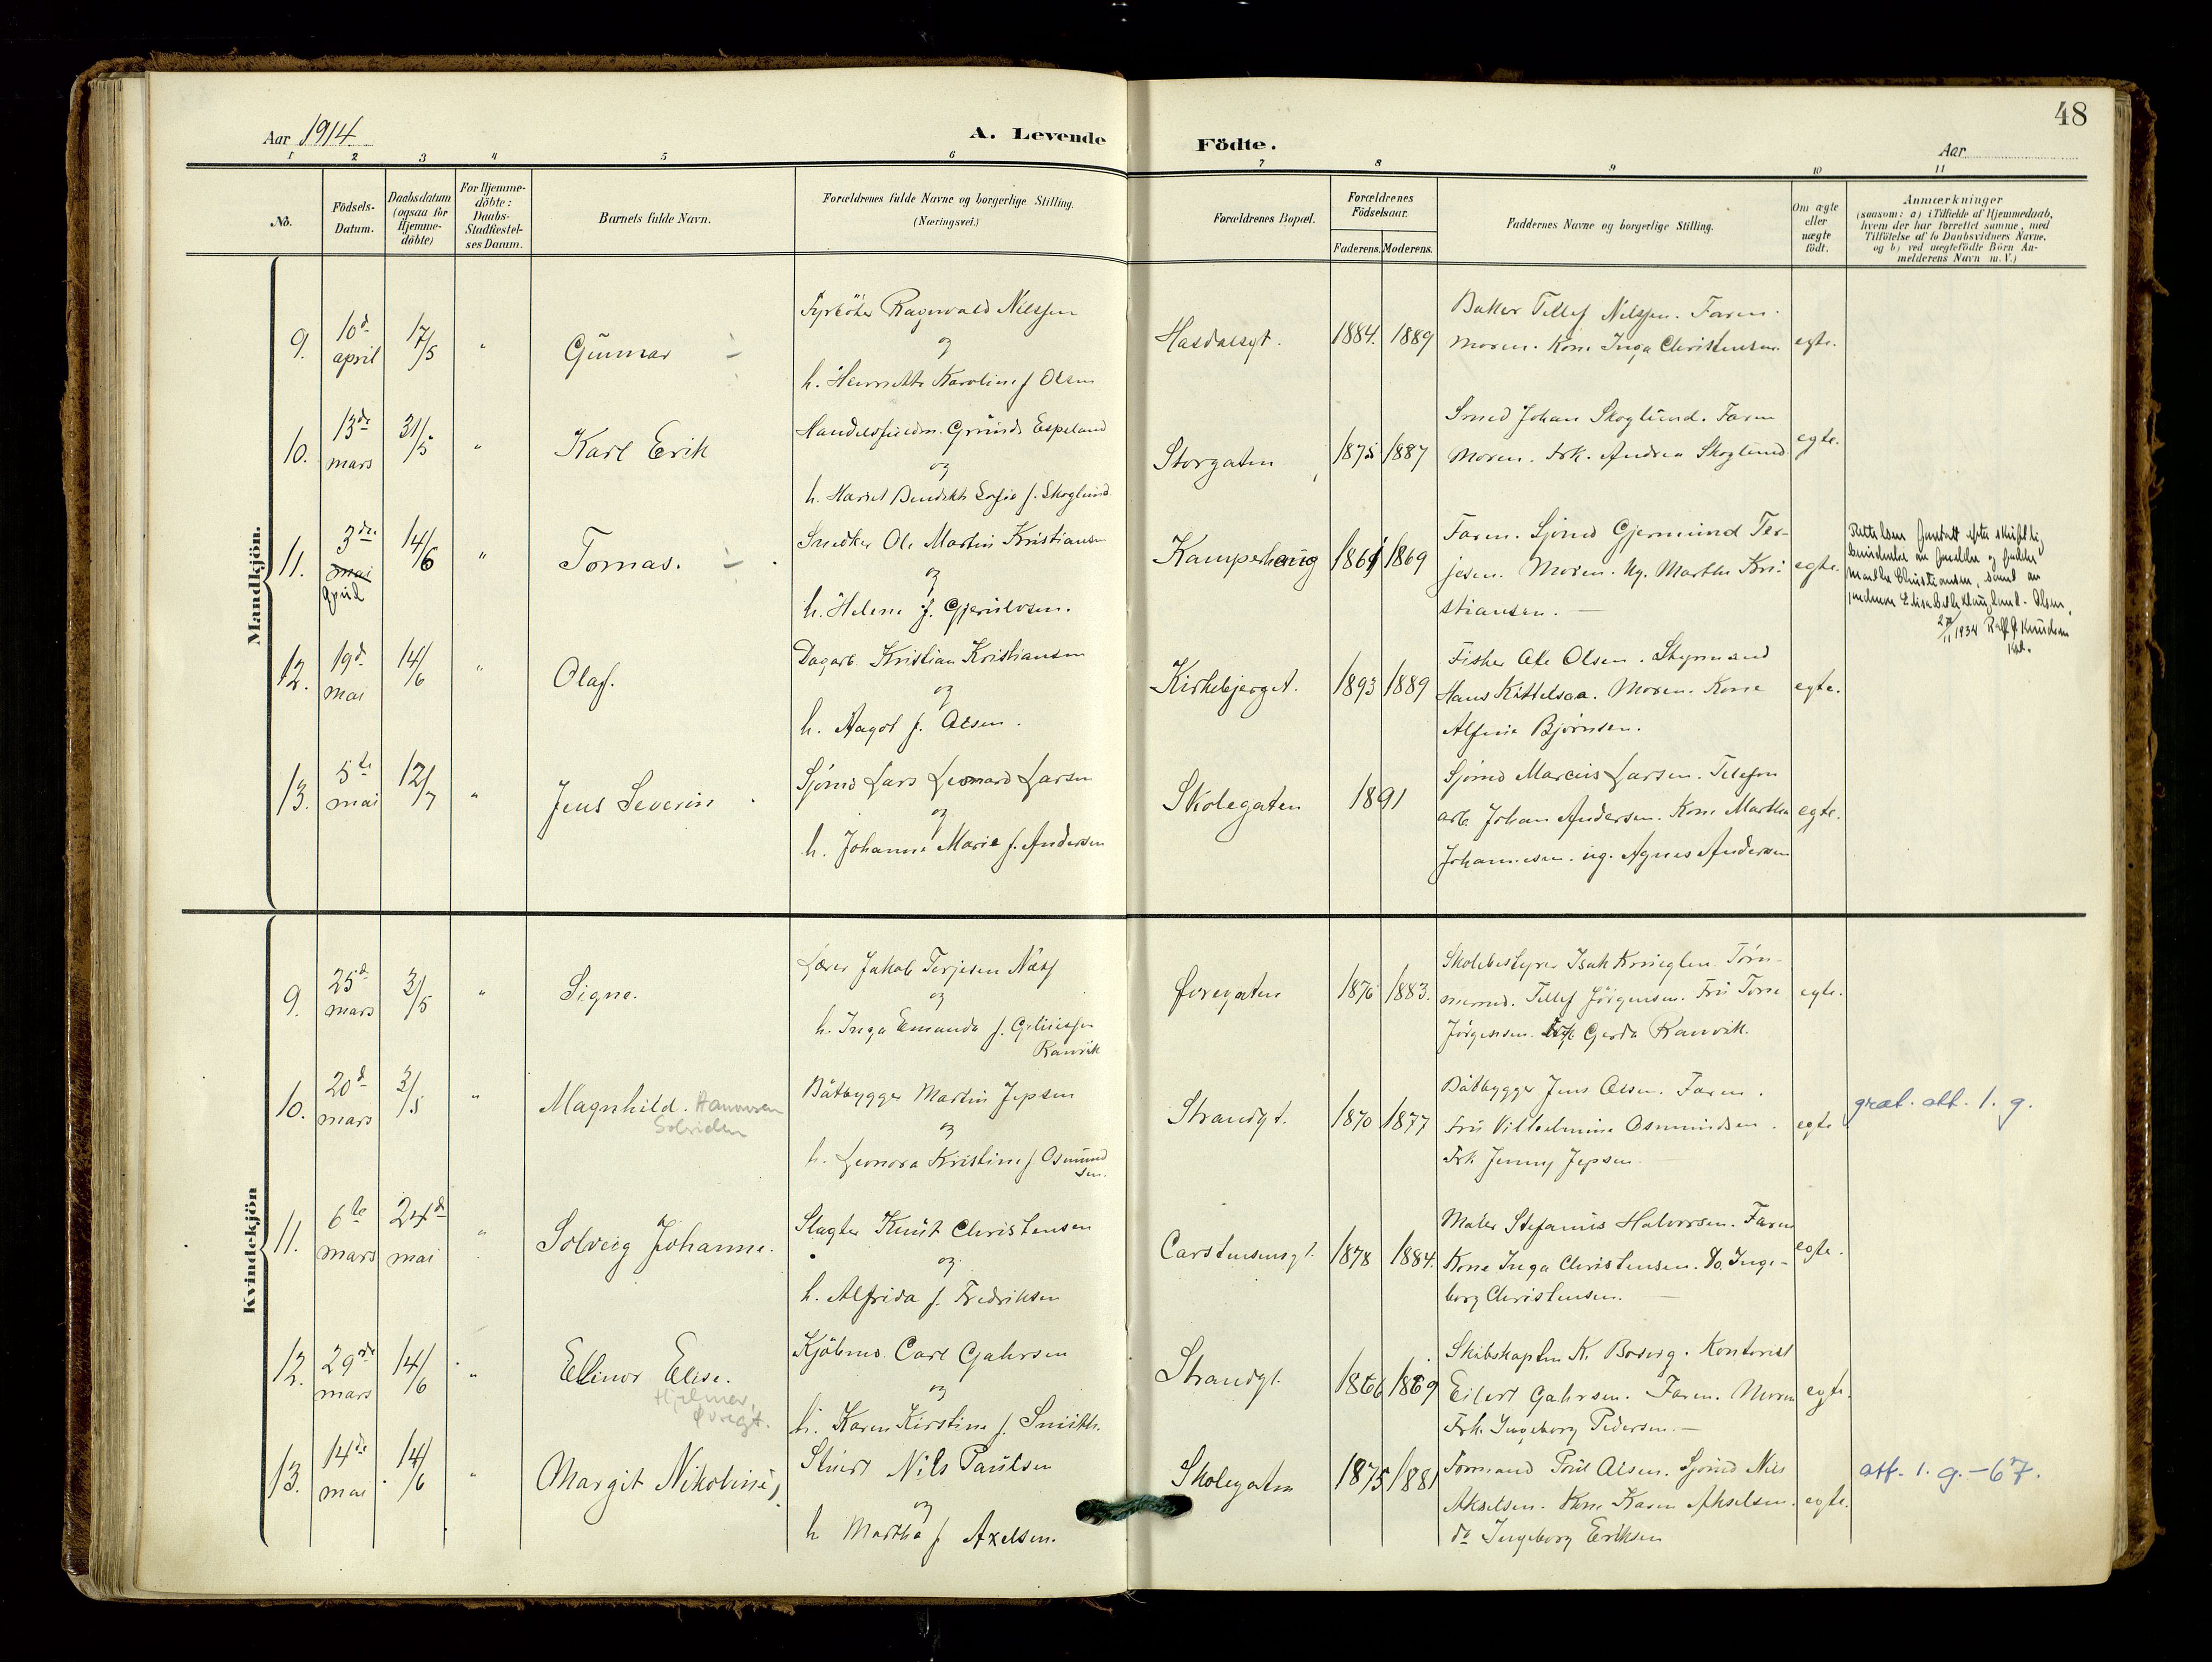 48
Aar 1914
A. Levende Födte.
Aar
1 2 3 4 5 6 7 8 9 10 11
No.
Födsels-
Datum.
Daabsdatum
(ogsaa for
Hjemme-
döbte)
For Hjemme-
döbte:
Daabs-
Stadfæstel-
ses Datum.
Barnets fulde Navn.
Forældrenes fulde Navne og borgerlige Stilling.
(Næringsvei.)
Forældrenes Bopæl.
Forældrenes
Födselsaar.
Faderens. Moderens.
Faddernes Navne og borgerlige Stilling.
Om ægte
eller
uægte
födt.
Anmærkninger
(saasom: a) i Tilfælde af Hjemmedaab,
hvem der har forrettet samme, med
Tilföielse af to Daabsvidners Navne.
og b) ved uægtefödte Börn An-
melderens Navn m. V.)
Mandkjön.
9.
10d
april
17/5
"
Gunnar
Fyrbøter Ragnvald Nilssen
og
h. Henriette Karoline f Olsen
Hasdalsgt.
1884. 1889
Bakker Tellef Nilssen. Faren.
Moren. Kone Inga Christensen.
egte.
10.
13de
mars
31/5
"
Karl Erik
Espeland
og
h. Harriet Bendikte Sofie f. Skoglund
Storgaten
1875 1887
Smed Johan Skoglund. Faren
Moren. Frk. Andrea Skoglund
egte.
11.
3die
mai
april
14/6
"
Tomas.
Snedker Ole Martin Kristiansen
og
h. Helene f. Gjerulvsen.
Kamperhaug
1869
Faren. Sjömd Gjermund Ter-
jesen. Moren. Ug. Marthe Kri-
stiansen.
egte.
Rettelsen foretatt efter skriftlig
Marthe Christiansen, samt av
27/11 1934
12.
19d
mai
14/6
"
Olaf.
Dagarb. Kristian Kristiansen
og
h. Aagot f. Olsen.
Kirkebjerget.
1893 1889
Fisker Ole Olsen. Styrmand
Hans Kittelsaa. Moren. Kone
Alfine Bjørnsen.
egte.
13.
5te
mai
12/7
"
Jens Severin
Sjömd Lars Leonard Larsen
og
h. Johanne Marie f. Andersen
Skolegaten
1891
Sjömd Marcius Larsen. Telefon
arb. Johan Andersen. Kone Martha
Johannesen. ug. Agnes Andersen
egte.
Kvindekjön
9.
25d
mars
3/5
"
Signe.
Lærer Jakob Terjesen Næss
og
h. Inga Emanda f.
Ranvik
Øvregaten
1876 1883.
Skolebestyrer Isak
Tellef Jörgensen. Fru Tone
Jörgensen. Gerda Ranvik.
egte.
10.
20d
mars
3/5
"
Magnhild. Hannevsen
Solsiden
Båtbygger Martin Jepsen
og
h. Leonora Kristine f. Osmund
sen.
Strandgt.
1870 1877
Båtbygger Jens Olsen. Faren.
Fru Vilhelmine Osmundsen.
Frk. Jenny Jepsen
egte
grat. att. l. g.
11.
6te
mars
24d
mai
"
Solveig Johanne.
Slagter Knut Christensen
og
h. Alfrida f. Fredriksen
Carstensensgt.
1878 1884.
Maler Stefanus Halvorsen. Faren
Kone Inga Christensen. Do. Inge-
borg Christensen.
egte.
12.
29de
mars
14/6
"
Ellinor Elise.
Hjelmer,
Øvregt.
Kjöbmd. Carl Gahrsen
og
h. Karen Kirstine f. Smith.
Strandgt.
1866 1869
Skibskaptn K. Bosvig. Kontorist
Eilert Gahrsen. Faren. Moren
Frk. Ingeborg Pedersen.
egte.
13.
14de
mai
14/6
"
Margit Nikoline,
Stuert Nils Paulsen
og
h Martha f Axelsen.
Skolegaten
1875 1881
Formand Poul Olsen. Sjömd Nils
Akselsen. Kone Karen Akselsen.
do Ingeborg Eriksen
egte.
att. l. g. - 67.